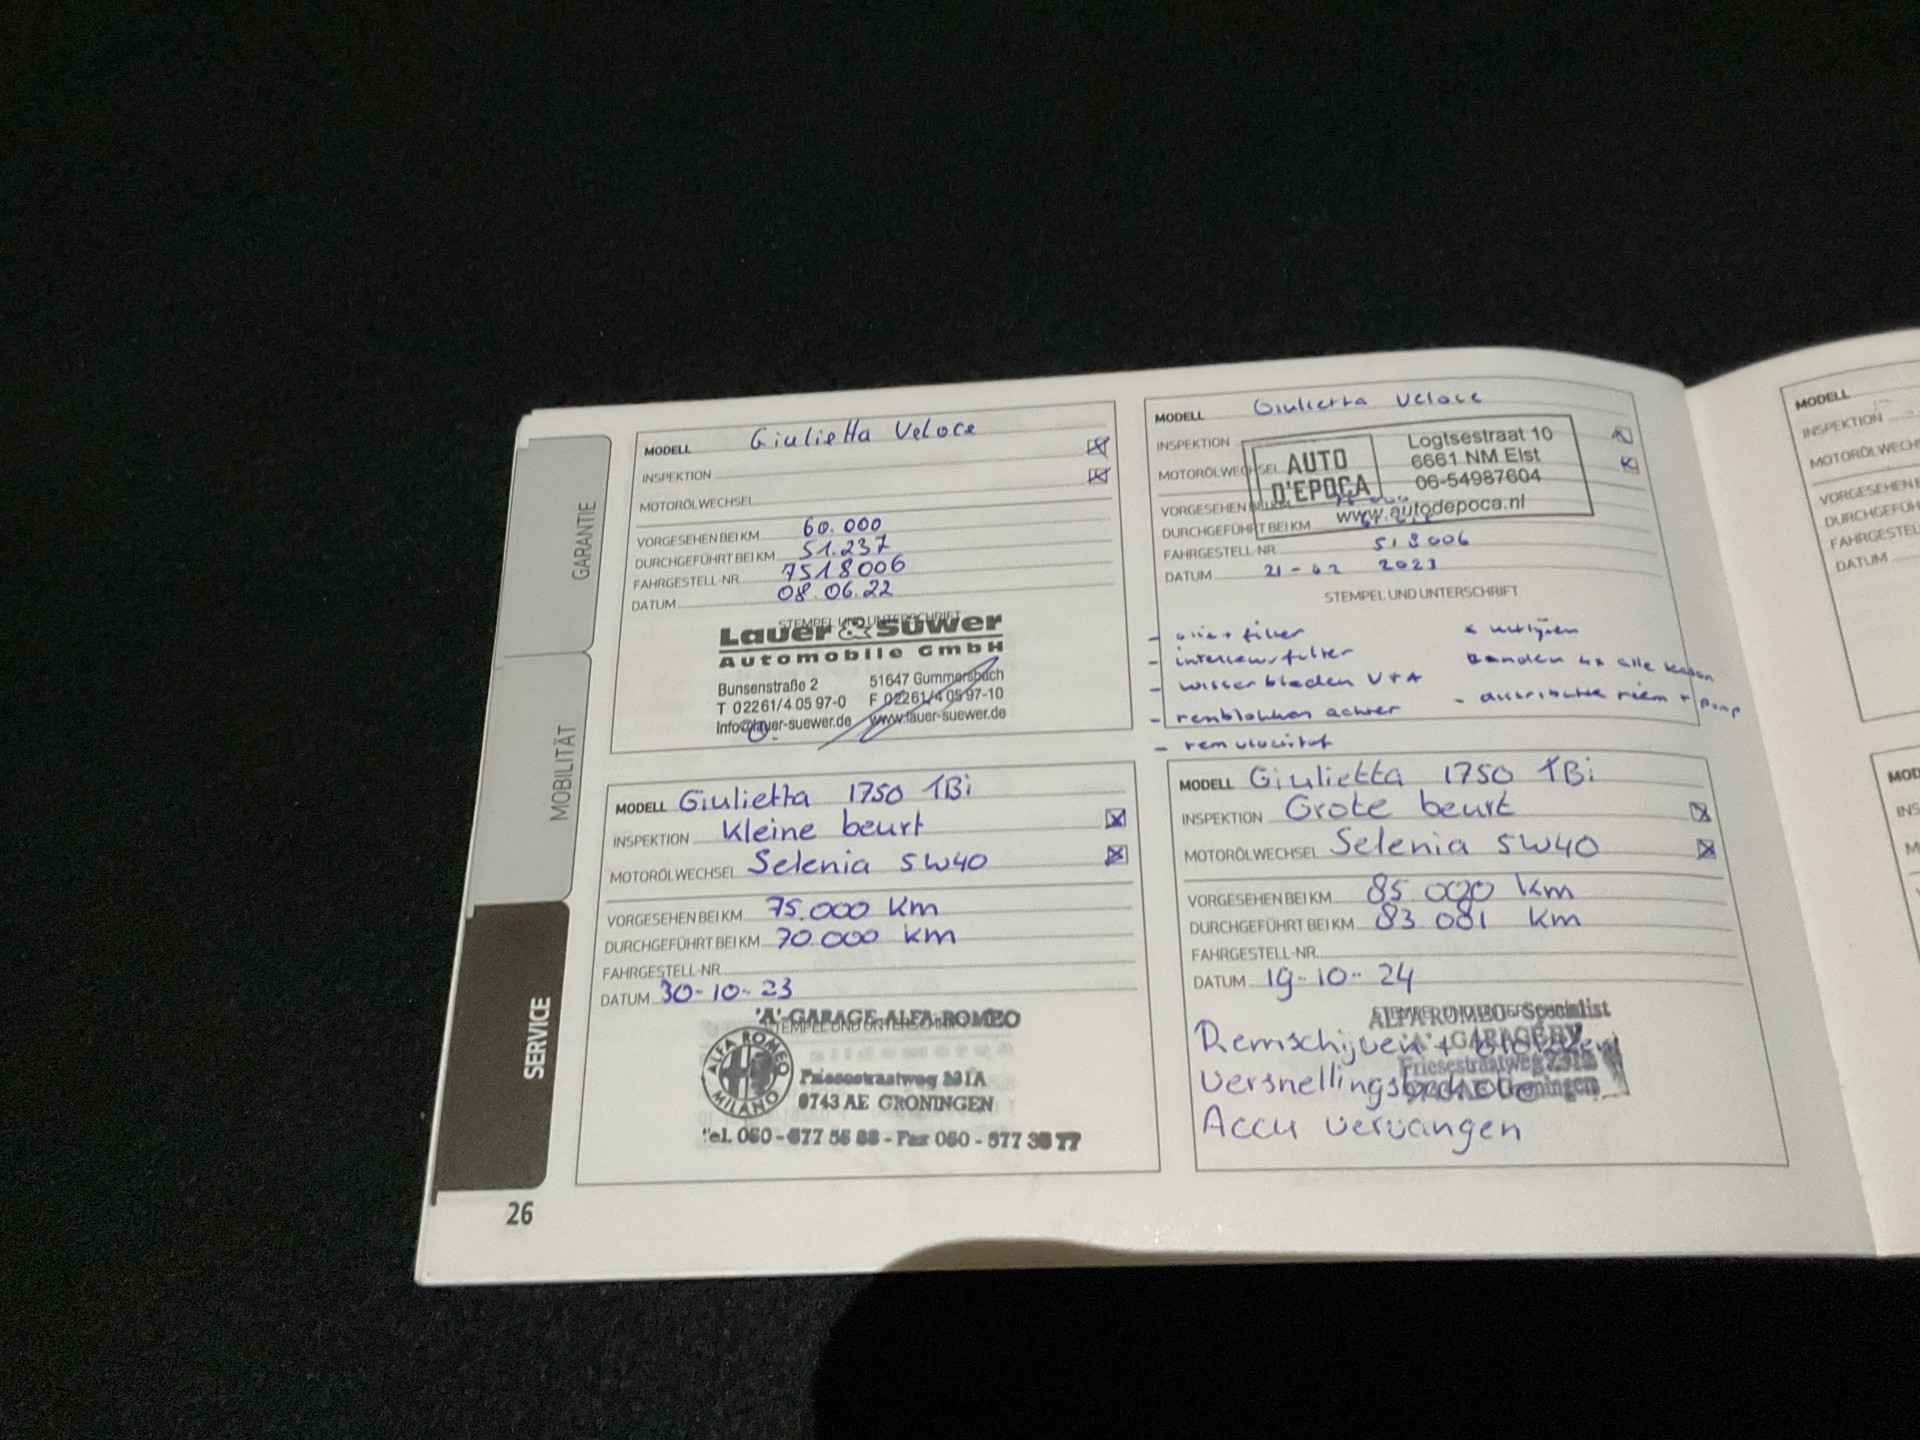 GARANTIE
MOBILITÄT
SERVICE
MODELL Giulietta Veloce
INSPEKTION
MOTORÖLWECHSEL
VORGESEHEN BEI KM 60.000
DURCHGEFÜHRT BEI KM 51.237
FAHRGESTELL-NR. 7518006
DATUM 08.06.22
STEMPEL UND UNTERSCHRIFT
Lauer & Süwer
Automobile GmbH
Bunsenstraße 2 51647 Gummersbach
T 02261/4 05 97-0 F 02261/4 05 97-10
Info@lauer-suewer.de www.lauer-suewer.de
MODELL Giulietta Veloce
INSPEKTION
MOTORÖLWECHSEL
AUTO
D'EPOCA
Logtsestraat 10
6661 NM Elst
06-54987604
www.autodepoca.nl
VORGESEHEN BEI KM
DURCHGEFÜHRT BEI KM
FAHRGESTELL-NR. 518006
DATUM 21-02 2023
STEMPEL UND UNTERSCHRIFT
- olie + filter
- interieurfilter
- wisserbladen V+A
- remblokken achter
- remvloeistof
banden 4x alle
- distributie riem + pomp
MODELL Giulietta 1750 TBi
INSPEKTION Kleine beurt
MOTORÖLWECHSEL Selenia 5W40
VORGESEHEN BEI KM 75.000 km
DURCHGEFÜHRT BEI KM 70.000 km
FAHRGESTELL-NR.
DATUM 30-10-23
STEMPEL UND UNTERSCHRIFT
'A'-GARAGE-ALFA-ROMEO
ALFA ROMEO
MILANO
Friesestraatweg 231A
9743 AE GRONINGEN
MODELL Giulietta 1750 TBi
INSPEKTION Grote beurt
MOTORÖLWECHSEL Selenia 5W40
VORGESEHEN BEI KM 85 000 km
DURCHGEFÜHRT BEI KM 83 081 km
FAHRGESTELL-NR.
DATUM 19-10-24
ALFA ROMEO Specialist
'A' GARAGE BV
Friesestraatweg 231a
Groningen
Remschijven + blokken
Versnellingsbakolie
Accu vervangen
26
MODELL
INSPEKTION
MOTORÖLWECHS
VORGESEHEN
DURCHGEFÜH
FAHRGESTEL
DATUM
MOD
INS